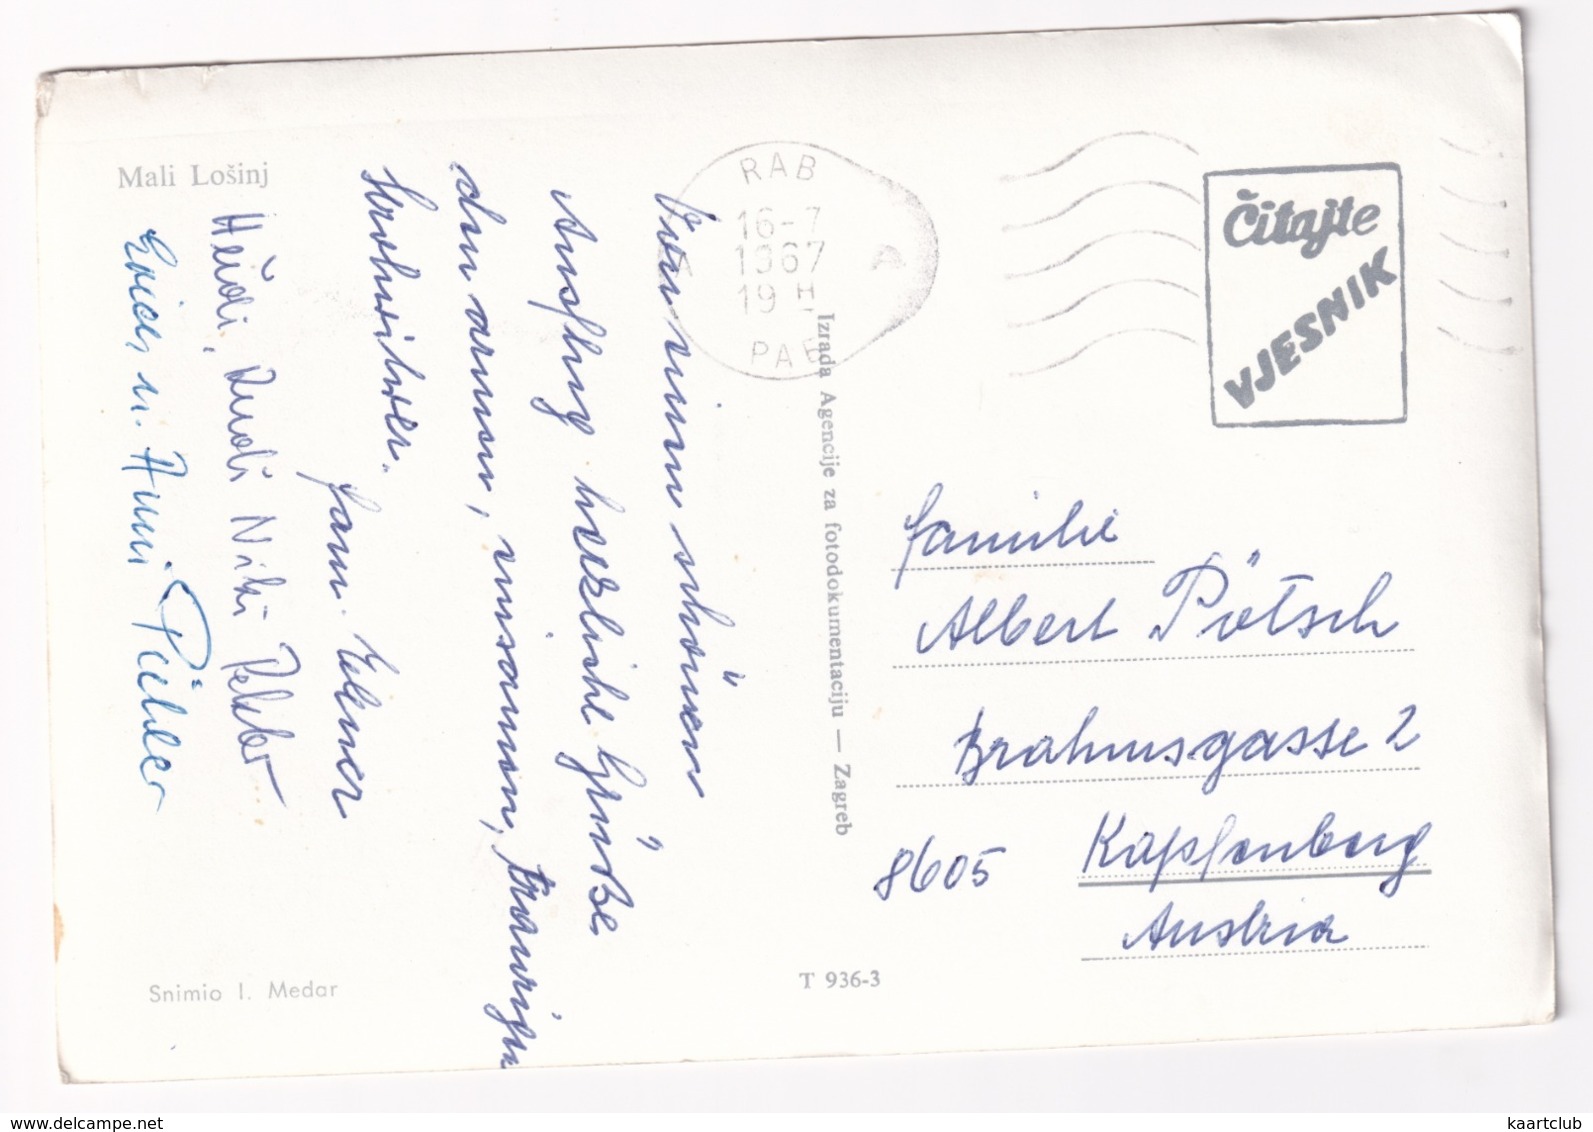 Mali Lošinj
Von einem schönen
Ausflug herzliche Grüße
den armen, einsamen, traurigen
Strohwitwer.
Fam. Ebner
Heidi, Rudi Niki
Erich u. Anni Pichler
Snimio I. Medar
T 936-3
Izrada Agencije za fotodokumentaciju — Zagreb
RAB
16-7
1967
19
Čitajte
VJESNIK
Familie
Albert Pötsch
Brahmsgasse 2
8605 Kapfenberg
Austria
www.delcampe.net
kaartclub